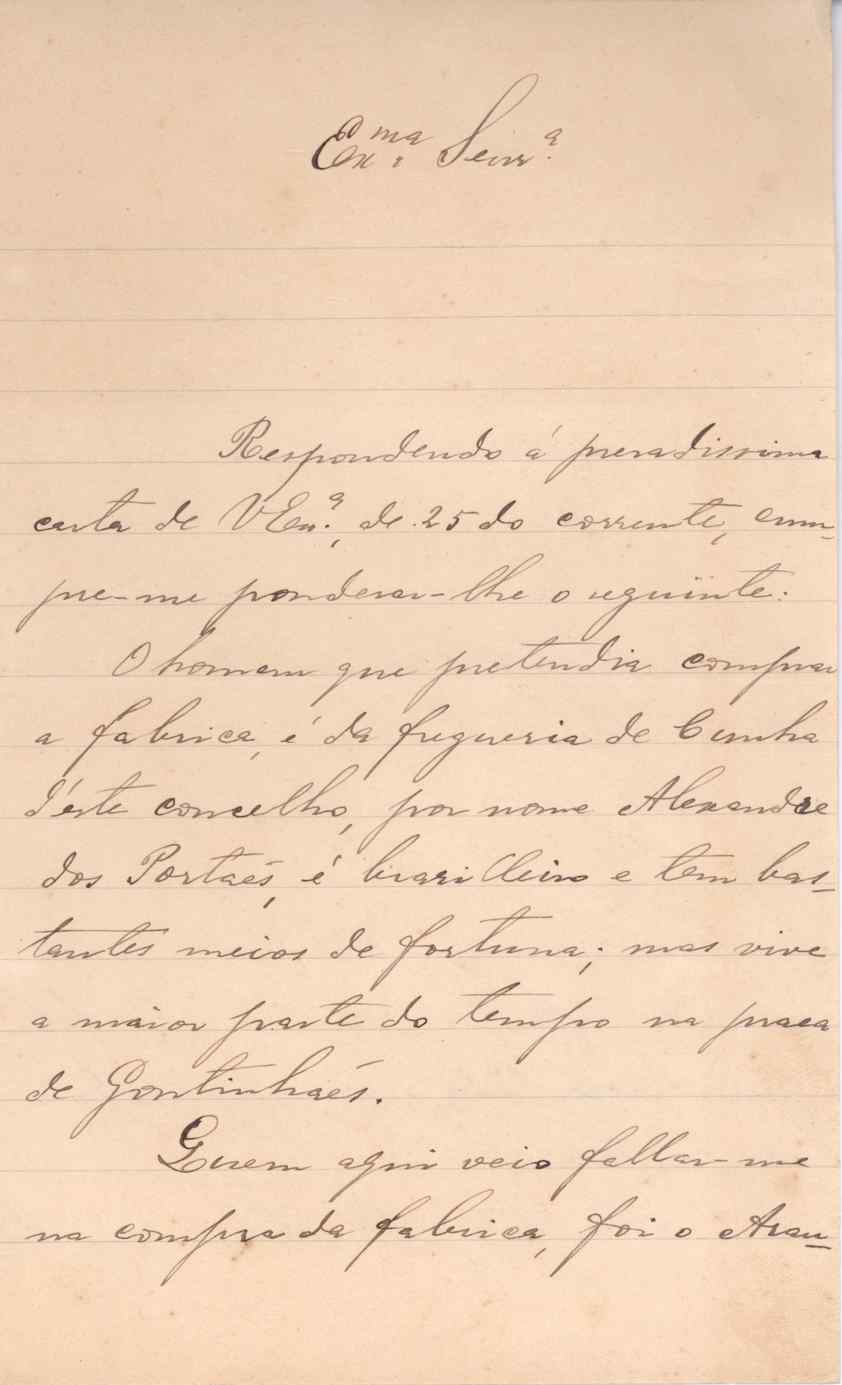 Ex.ma Senr.a
Respondendo á presadissima
carta de VEx.a, de 25 do corrente, cum-
pre-me ponderar-lhe o seguinte:
O homem que pretendia comprar
a fabrica, é da freguesia de Cunha
d'este concelho, por nome Alexandre
dos Portaés, é brasileiro e tem bas-
tantes meios de fortuna; mas vive
a maior parte do tempo na praça
de Gontinhaés.
Quem aqui veio fallar-me
na compra da fabrica, foi o Arau-